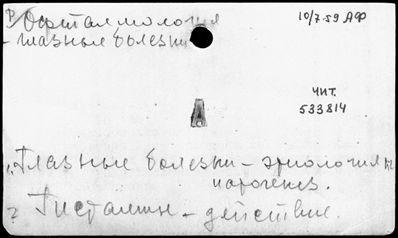 В Офталмология
10/7-59 АФ
- глазные болезни
А
чит.
533814
1. Глазные болезни - этиология и
патогенез.
2 Гисталин - действие.